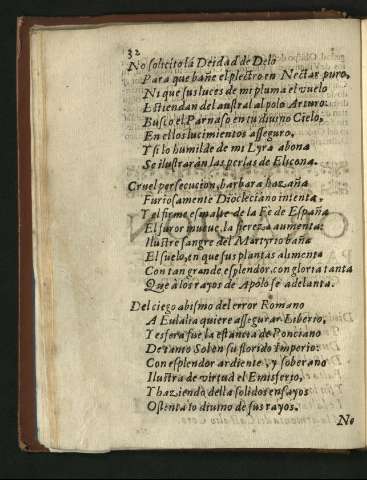 32
No solicito lá Deidad de Delo
Para que bañe el plectro en Nectar puro,
Ni que sus luces de mi pluma el vuelo
Estiendan del austral al polo Arturo:
Busco el Parnaso en tu divino Cielo,
En ellos lucimientos asseguro,
Y si lo humilde de mi Lyra abona
Se ilustrarán las perlas de Elicona.
Cruel persecucion, barbara hazaña
Furiosamente Diocleciano intenta,
Y al firme esmalte de la Fe de España
El furor mueue, la fiereza aumenta:
Ilustre sangre del Martyrio baña
El suelo, en que sus plantas alimenta
Con tan grande esplendor, con gloria tanta
Que à los rayos de Apolo se adelanta.
Del ciego abismo del error Romano
A Eulalia quiere assegurar Liberio,
Y esfera fue la estancia de Ponciano
De tanto Sol en su florido Imperio:
Con esplendor ardiente, y soberano
Ilustra de virtud el Emisferio,
Y haziendo della solidos ensayos
Ostenta lo divino de sus rayos.
No